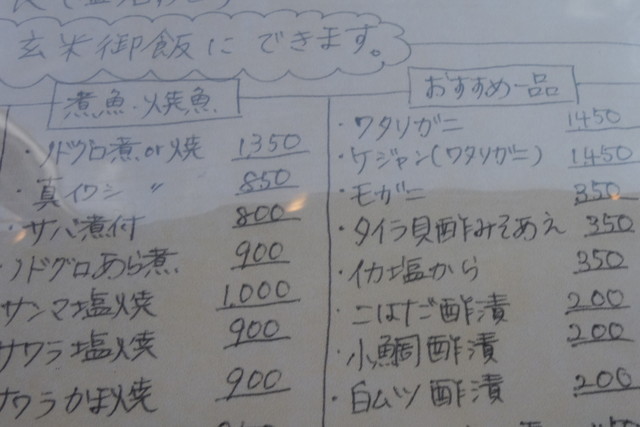 玄米御飯にできます。
煮魚・焼魚
・ノドグロ煮or焼 1,350
・真イワシ 〃 850
・サバ煮付 800
・ノドグロあら煮 900
サンマ塩焼 1,000
サワラ塩焼 900
サワラかま焼 900
おすすめ一品
・ワタリガニ 1450
・ケジャン(ワタリガニ) 1450
・モガニ 350
・タイラ貝酢みそあえ 350
・イカ塩から 350
・こはだ酢漬 200
・小鯛酢漬 200
・白ムツ酢漬 200